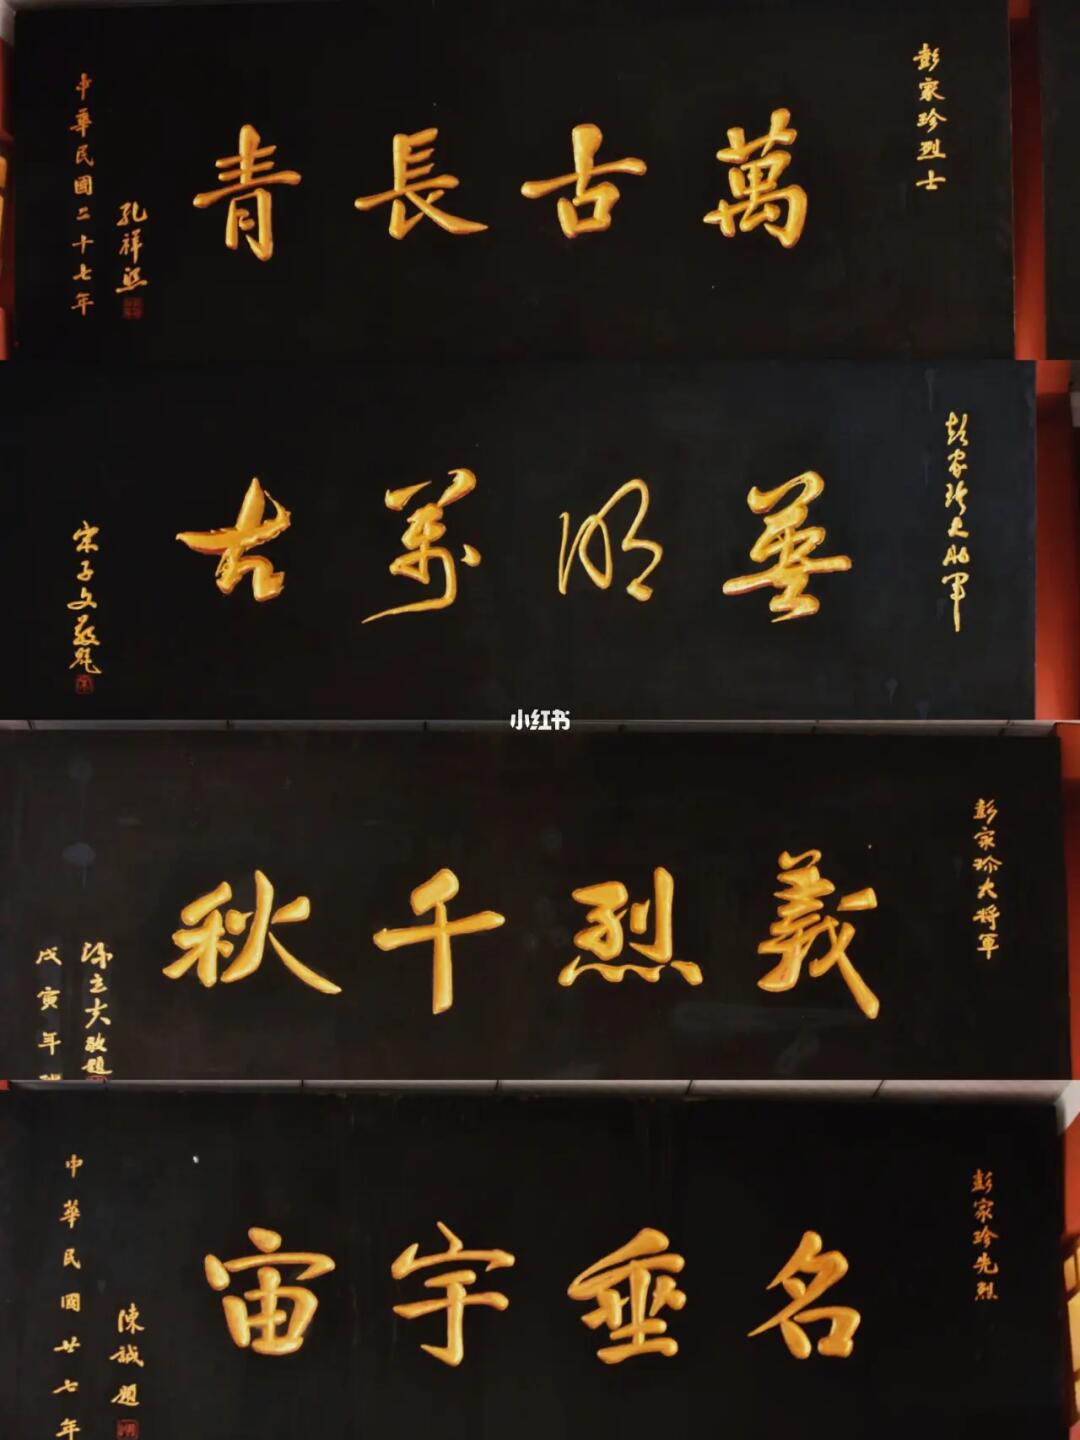 彭家珍烈士
萬古長青
孔祥熙
中華民國二十七年
彭家珍大將軍
明萬古
宋子文敬題
小红书
彭家珍大將軍
義烈千秋
陳立夫敬題
戊寅年
彭家珍先烈
名垂宇宙
陳誠題
中華民國廿七年